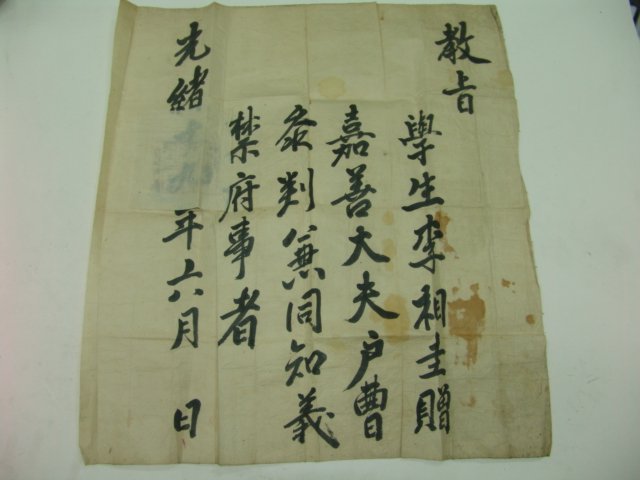 教旨
學生李相圭贈
嘉善大夫戶曹
叅判兼同知義
禁府事者
光緖十九年六月 日